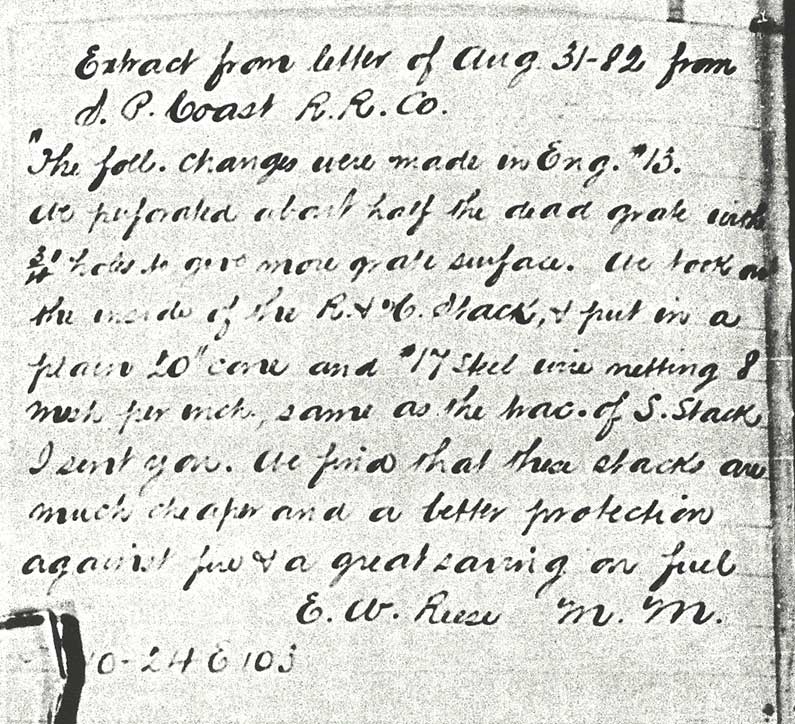 Extract from letter of Aug. 31-82 from
S. P. Coast R. R. Co.
"The foll. changes were made in Eng. #13.
We perforated about half the dead grate with
3/4" holes to give more grate surface. We took out
the inside of the R. & C. Stack, & put in a
plain 20" cone and #17 Steel wire netting 8
mesh per inch, same as the trac. of S. Stack
I sent you. We find that these stacks are
much cheaper and a better protection
against fire & a great saving on fuel
E. W. Reese M. M.
10-24 E 103